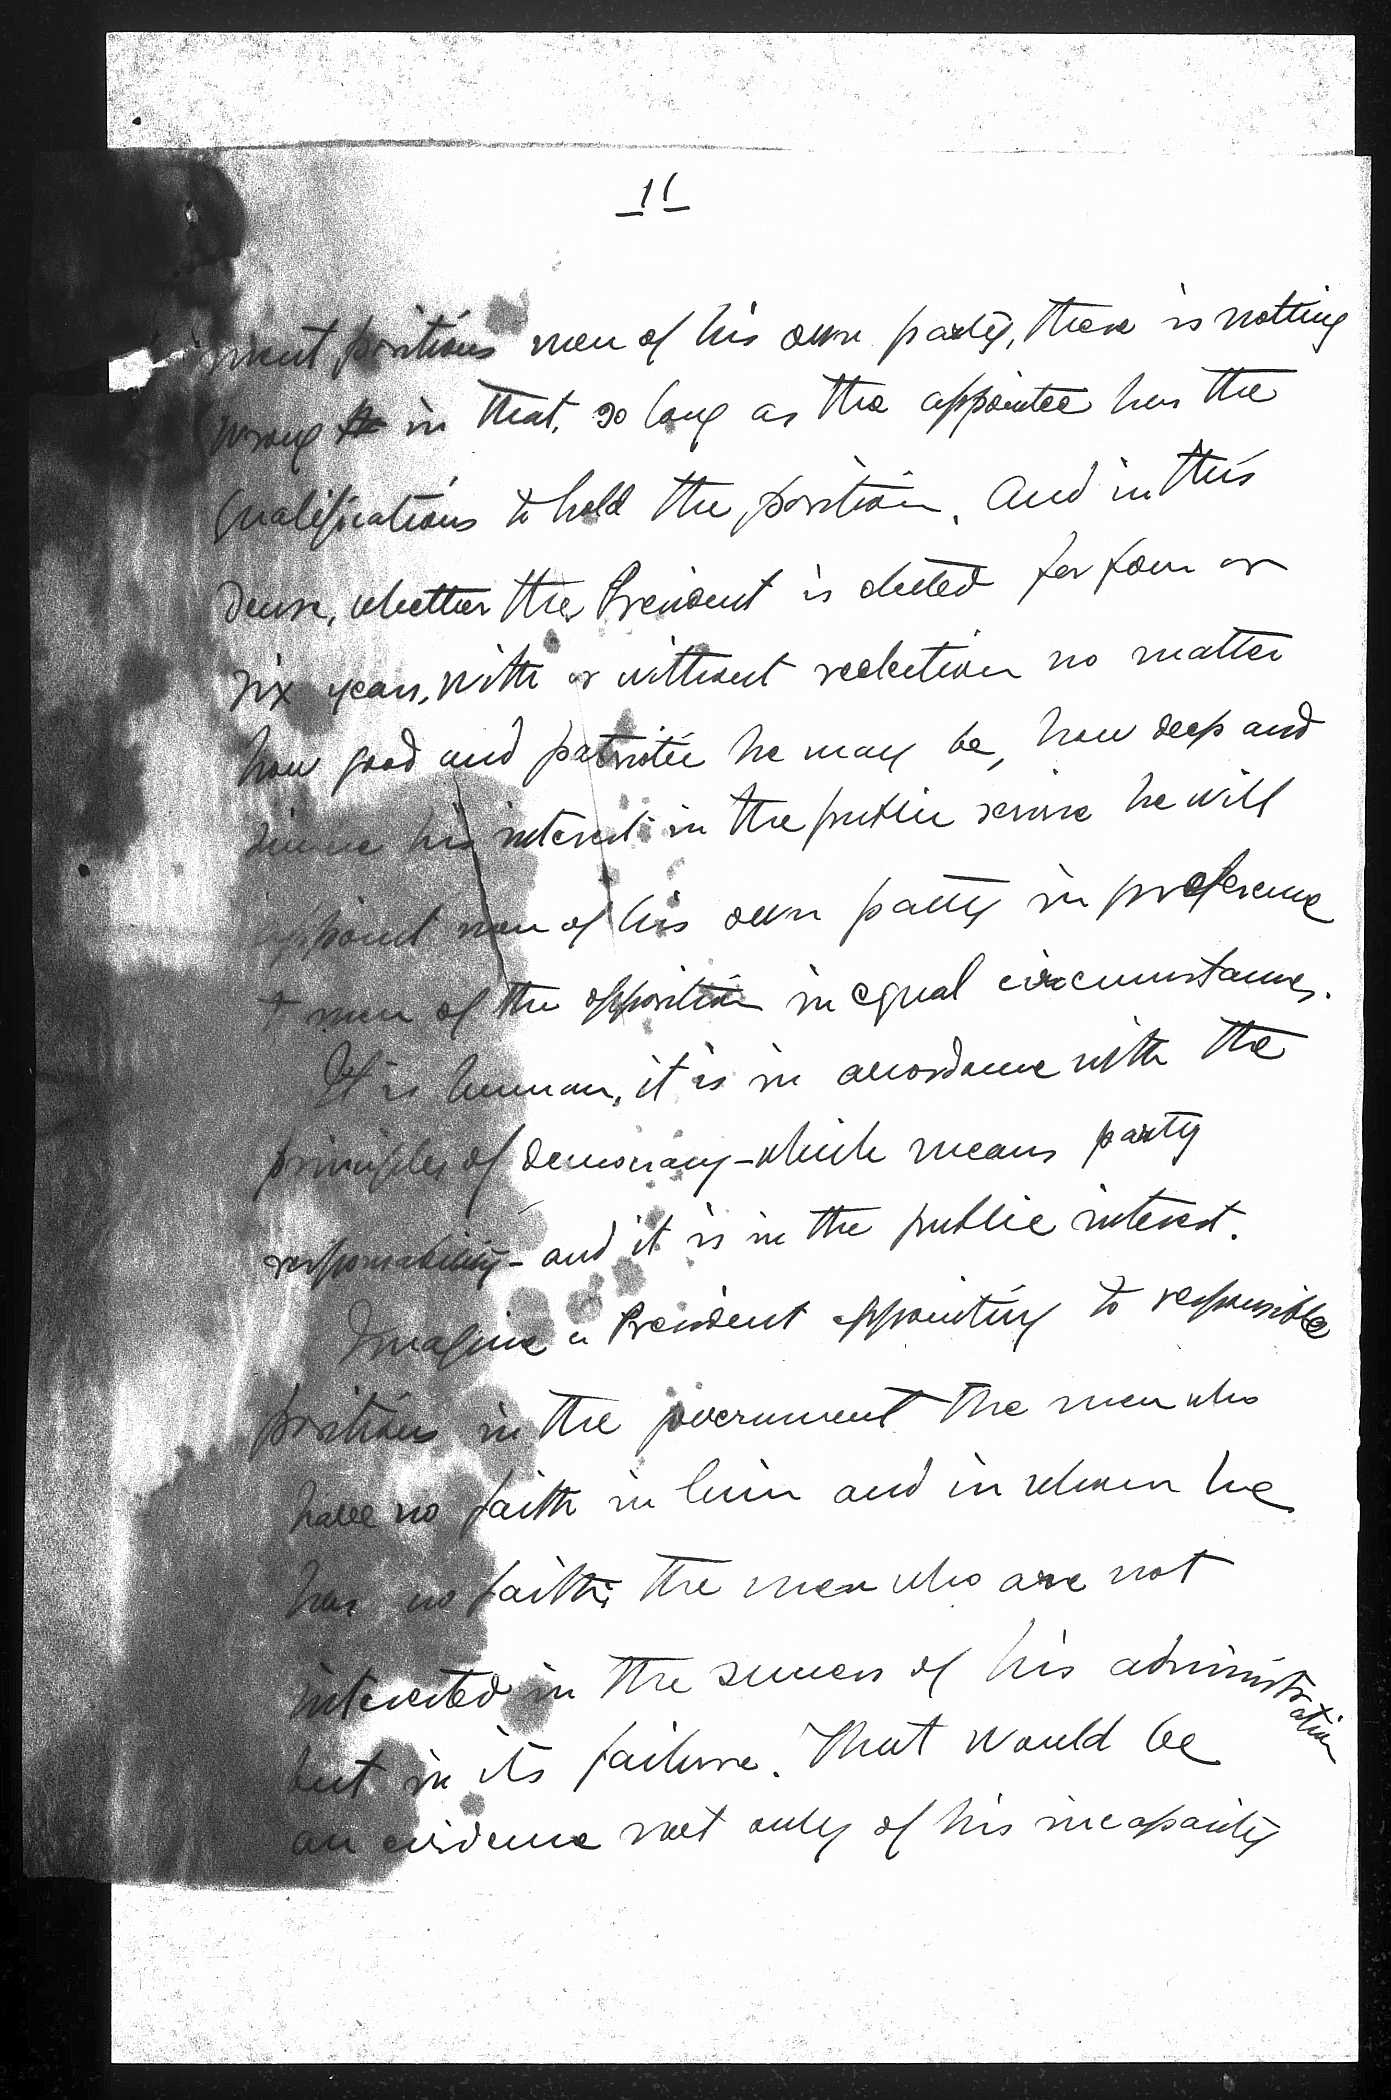 11
ment positions men of his own party, there is nothing
wrong in that, so long as the appointee has the
qualifications to hold the position. And in this
sense, whether the President is elected for four or
six years, with or without reelection no matter
how good and patriotic he may be, how deep and
sincere his interest in the public service he will
appoint men of his own party in preference
to men of the opposition in equal circumstances.
It is human, it is in accordance with the
principles of democracy – which means party
responsability – and it is in the public interest.
Imagine a President appointing to responsible
positions in the government the men who
have no faith in him and in whom he
has no faith; the men who are not
interested in the success of his administration
but in its failure. That would be
an evidence not only of his incapacity